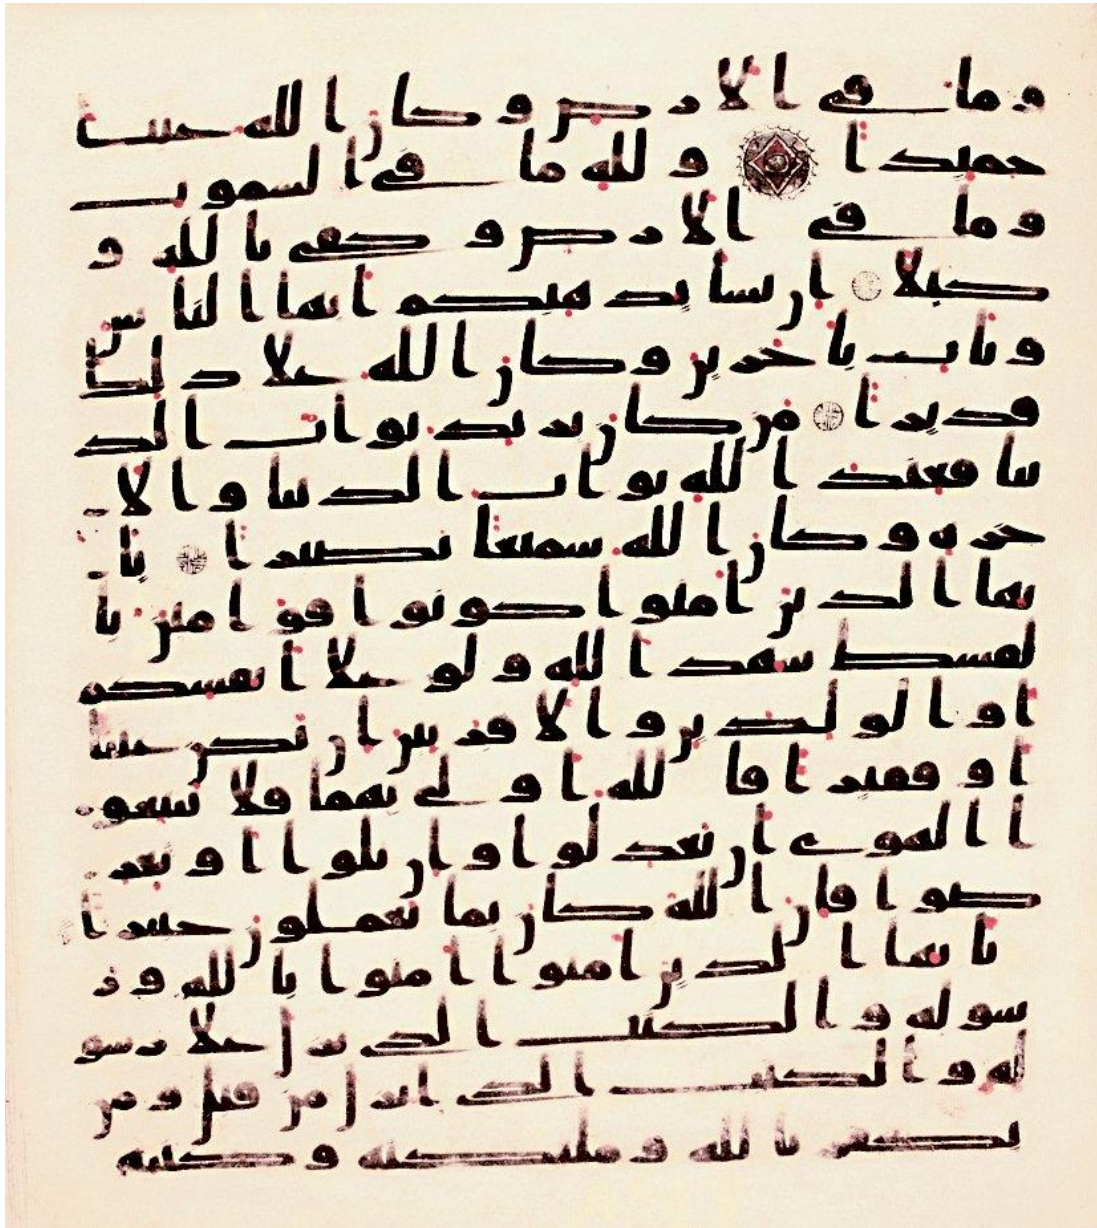 وما في الارض وكان الله غنيا
حميدا ولله ما في السموت
وما في الارض وكفى بالله و
كيلا ان يشا يذهبكم ايها الناس
ويات باخرين وكان الله على ذلك
قديرا من كان يريد ثواب الد
نيا فعند الله ثواب الدنيا والا
خرة وكان الله سميعا بصيرا يا
يها الذين امنوا كونوا قوامين با
لقسط شهدا لله ولو على انفسكم
او الولدين والاقربين ان يكن غنيا
او فقيرا فالله اولى بهما فلا تتبعو
ا الهوى ان تعدلوا وان تلوا او تعر
ضوا فان الله كان بما تعملون خبيرا
يايها الذين امنوا امنوا بالله ور
سوله والكتب الذي نزل على رسو
له والكتب الذي انزل من قبل ومن
يكفر بالله ومليكته وكتبه